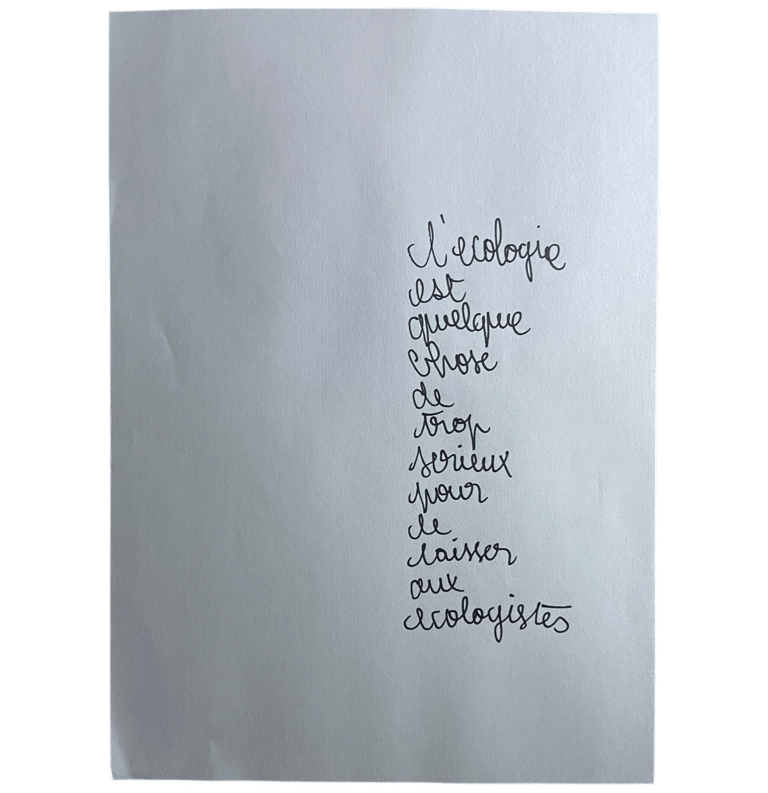 l'ecologie
est
quelque
chose
de
trop
serieux
pour
le
laisser
aux
ecologistes